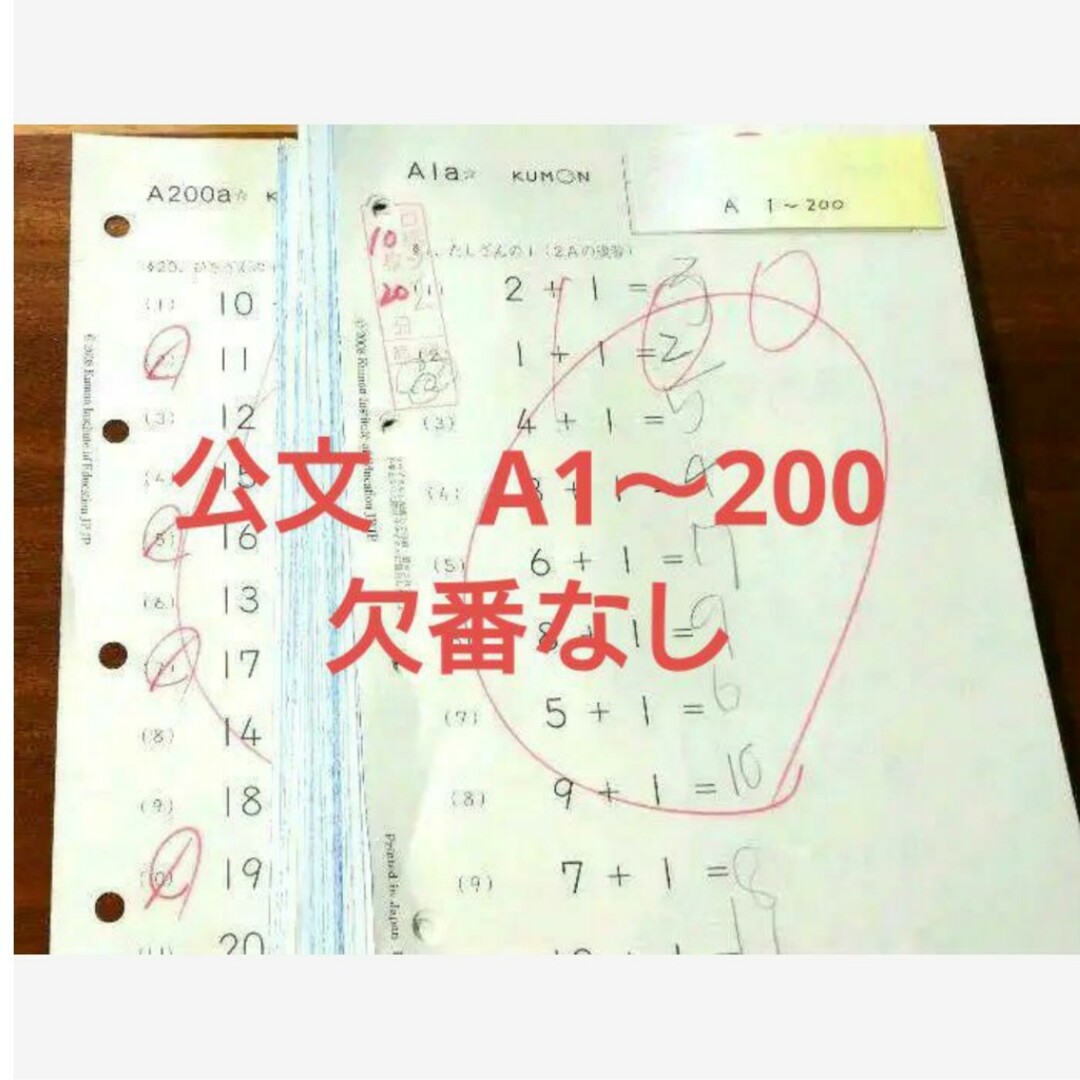 公文 A1〜200
欠番なし
A200a☆ K
(1) 10
11
(3) 12
(4) 15
(5) 16
(6) 13
17
(8) 14
(9) 18
19
20
©2008 Kumon Institute of Education JP JP
A1a☆ KUMON
A 1〜200
10
20
たしざんの1(2Aの復習)
(1) 2 + 1 = 3
1 + 1 = 2
(3) 4 + 1 = 5
(4) 3 + 1 = 4
(5) 6 + 1 = 7
8 + 1 = 9
(7) 5 + 1 = 6
(8) 9 + 1 = 10
(9) 7 + 1 = 8
Printed in Japan